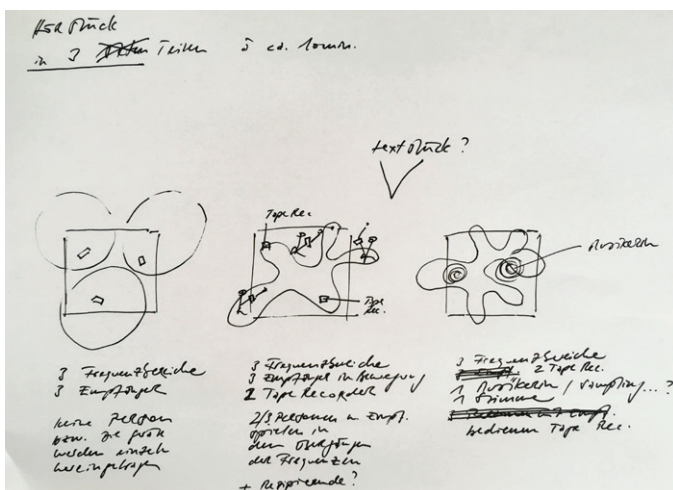 Hör Stück
in 3 Teilen à ca. 10 min.
text Stück?
Tape Rec.
Tape Rec.
Musikerin
3 Frequenzbereiche
3 Empfänger
keine Person
bzw. die
werden einzeln
hereingetragen
3 Frequenzbereiche
3 Empfänger in Bewegung
2 Tape Recorder
2/3 Personen m. Empf.
spielen in
den Übergängen
der Frequenzen
+ Rezipierende?
3 Frequenzbereiche
2 Tape Rec.
1 Musikerin / Sampling...?
1 Stimme
bedienen Tape Rec.